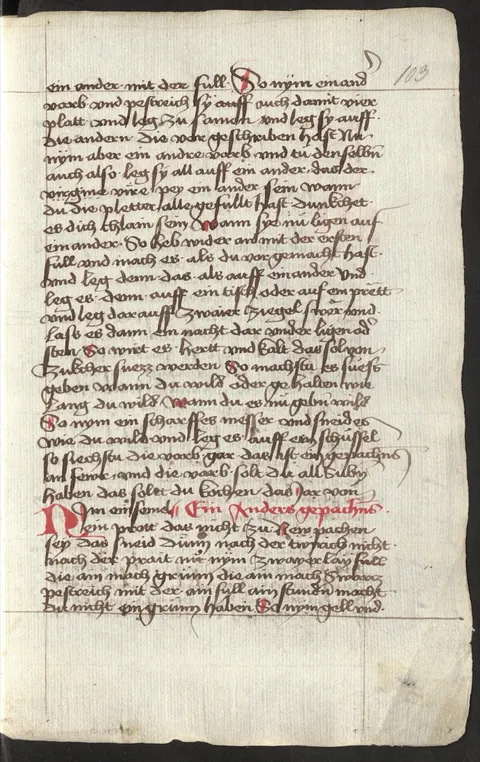 103
ein ander · mit der full · So nÿm ein and
varb · vnd pestreich sÿ auff auch damit vier
platt · vnd leg zu samen · vnd leg sy auff ·
die andern · die vor geschriben hast Nu
nÿm aber ein andre varb · vnd tu denselbn
auch also · leg sy all auff ein ander · das der ·
virgine vire · pey ein ander sein wann
du die pletter · alle gefüllt hast · dunkchet ·
es dich chlain sein · Wann sye nu ligen auf
ein ander · So heb wider an mit der ersten
full vnd mach es · als du vor gemacht hast ·
vnd leg denn das · als auff ein ander vnd
leg es · denn auff ein tisch oder auf ein prett
vnd leg dar auff · zwaier ziegel swer vnd ·
lass es dann ein nacht dar vnder ligen od
sten So wirt es · hertt vnd kalt das sol von
zukcher suezz werden So machstu es suess
geben wann du wild oder ge halten wie
lang du wild Wann du es nu gebn wild
So nym ein scharffes messer vnd sneid es
wie du wild vnd leg es · auff ein schüssel
so siechstu die varb · gar das ist ein gepachns
am fewr · vnd die varb · solt du all
haben das solt du kochen das Jar von
Ein Anders gepachns ·
Nem prott das nicht zu New pachen
sey das sneid dünn nach der nicht ·
nach der prait nit nÿm zwayerlay füll
die ain mach grünn die ain mach Swarcz
pestreich mit der ain full ain stund macht
du nicht ein grünn haben So nym gell vnd ·